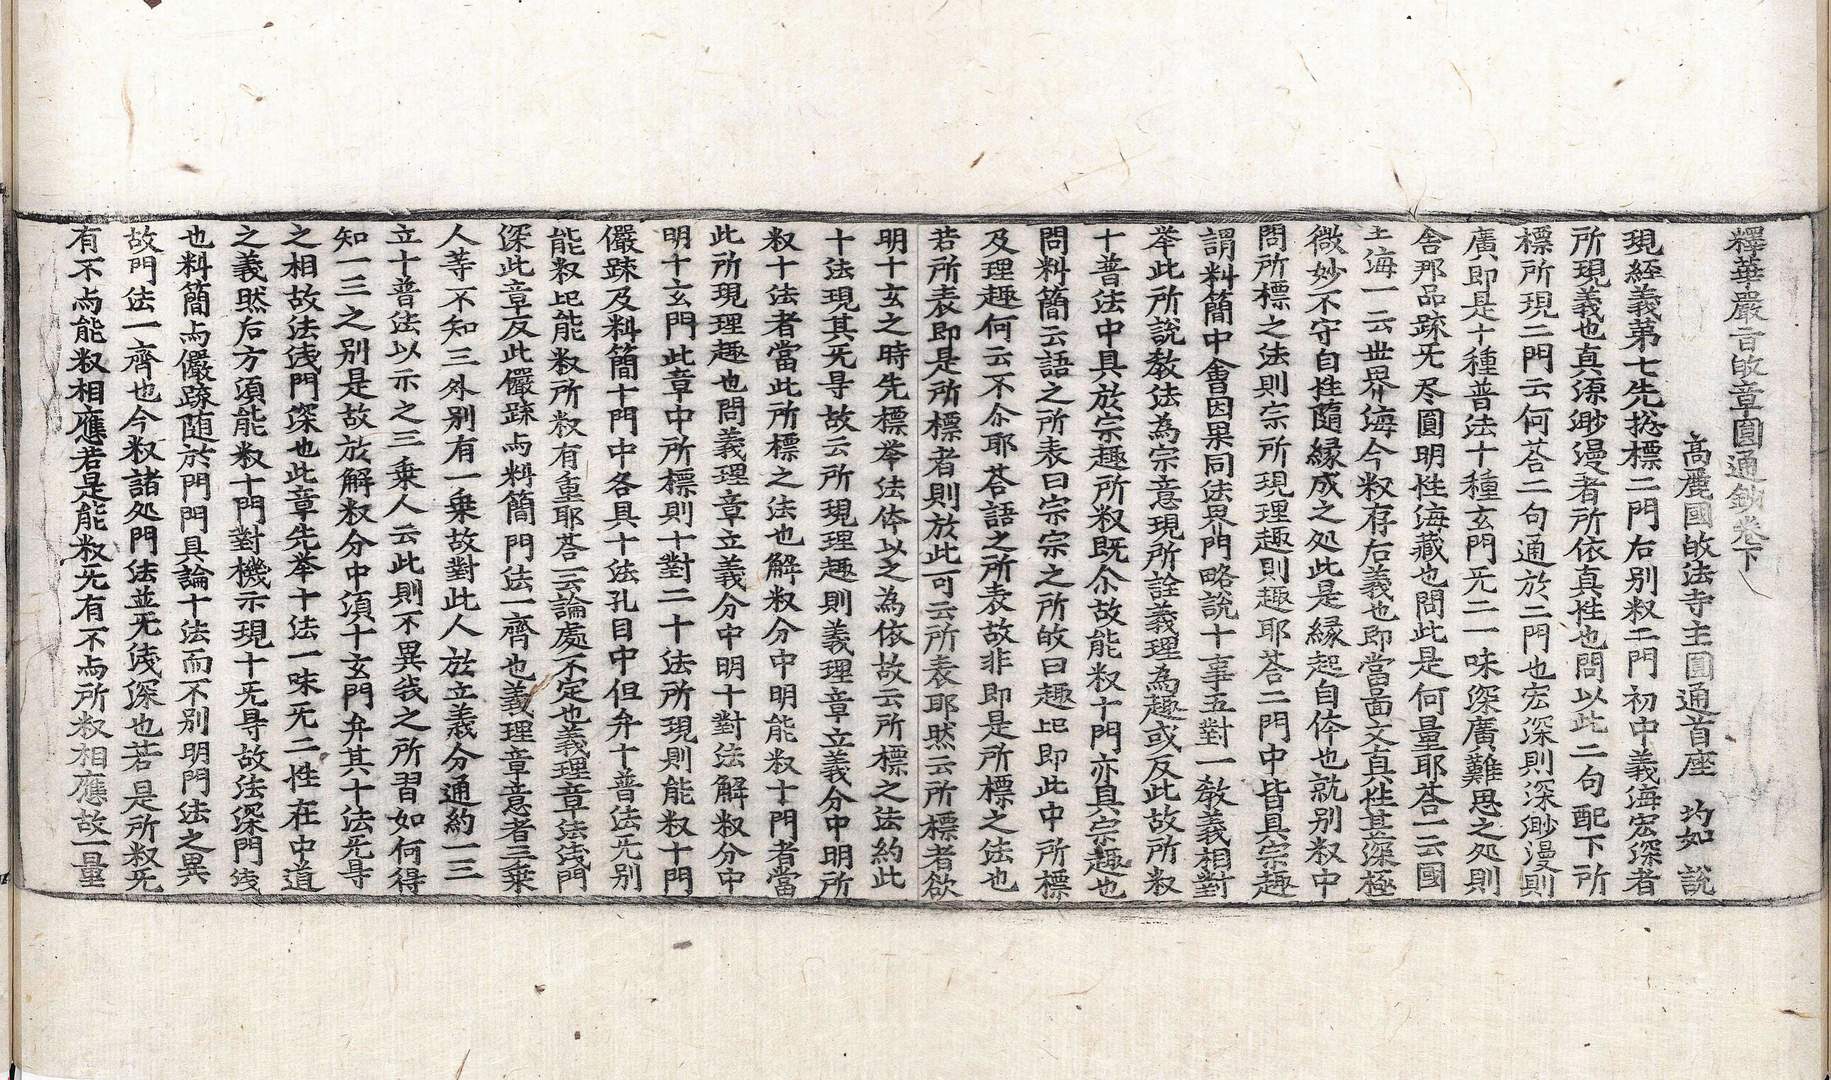 釋華嚴旨皈章圓通鈔卷下
高麗國皈法寺主圓通首座 均如 說
現經義第七先捴標二門右別㪽二門初中義海宏深者
所現義也真源渺漫者所依真性也問以此二句配下所
標所現二門云何荅二句通於二門也宏深則深渺漫則
廣即是十種普法十種玄門旡二一味深廣難思之処則
舍那品踈旡尽圓明性海藏也問此是何量耶荅一云國
土海一云世界海今㪽存右義也即當啚文真性甚深極
微妙不守自性隨緣成之処此是緣起自体也就別㪽中
問所標之法則宗所現理趣則趣耶荅二門中皆具宗趣
謂料簡中會因果同法界門略說十事五對一教義相對
挙此所說教法為宗意現所詮義理為趣或反此故所㪽
十普法中具於宗趣所㪽既尒故能㪽十門亦具宗趣也
問料簡云語之所表曰宗宗之所皈曰趣㠯即此中所標
及理趣何云不尒耶荅語之所表故非即是所標之法也
若所表即是所標者則放此可云所表耶然云所標者欲
明十玄之時先標挙法体以之為依故云所標之法約此
十法現其旡㝵故云所現理趣則義理章立義分中明所
㪽十法者當此所標之法也解㪽分中明能㪽十門者當
此所現理趣也問義理章立義分中明十對法解㪽分中
明十玄門此章中所標則十對二十法所現則能㪽十門
儼踈及料簡十門中各具十法孔目中但弁十普法旡別
能㪽㠯能㪽所㪽有重耶荅一云論處不定也義理章法淺門
深此章反此儼踈与料簡門法一齊也義理章意者三乗
人等不知三外別有一乗故對此人於立義分通約一三
立十普法以示之三乗人云此則不異我之所習如何得
知一三之別是故於解㪽分中湏十玄門弁其十法旡㝵
之相故法淺門深也此章先挙十法一味旡二性在中道
之義然后方湏能㪽十門對機示現十旡㝵故法深門淺
也料簡与儼踈随於門門具論十法而不別明門法之異
故門法一齊也今㪽諸処門法並旡淺深也若是所㪽旡
有不与能㪽相應若是能㪽旡有不与所㪽相應故一量